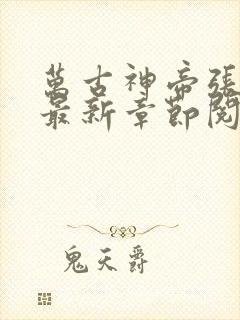 萬古神帝張
最新章節閱
鬼天爵